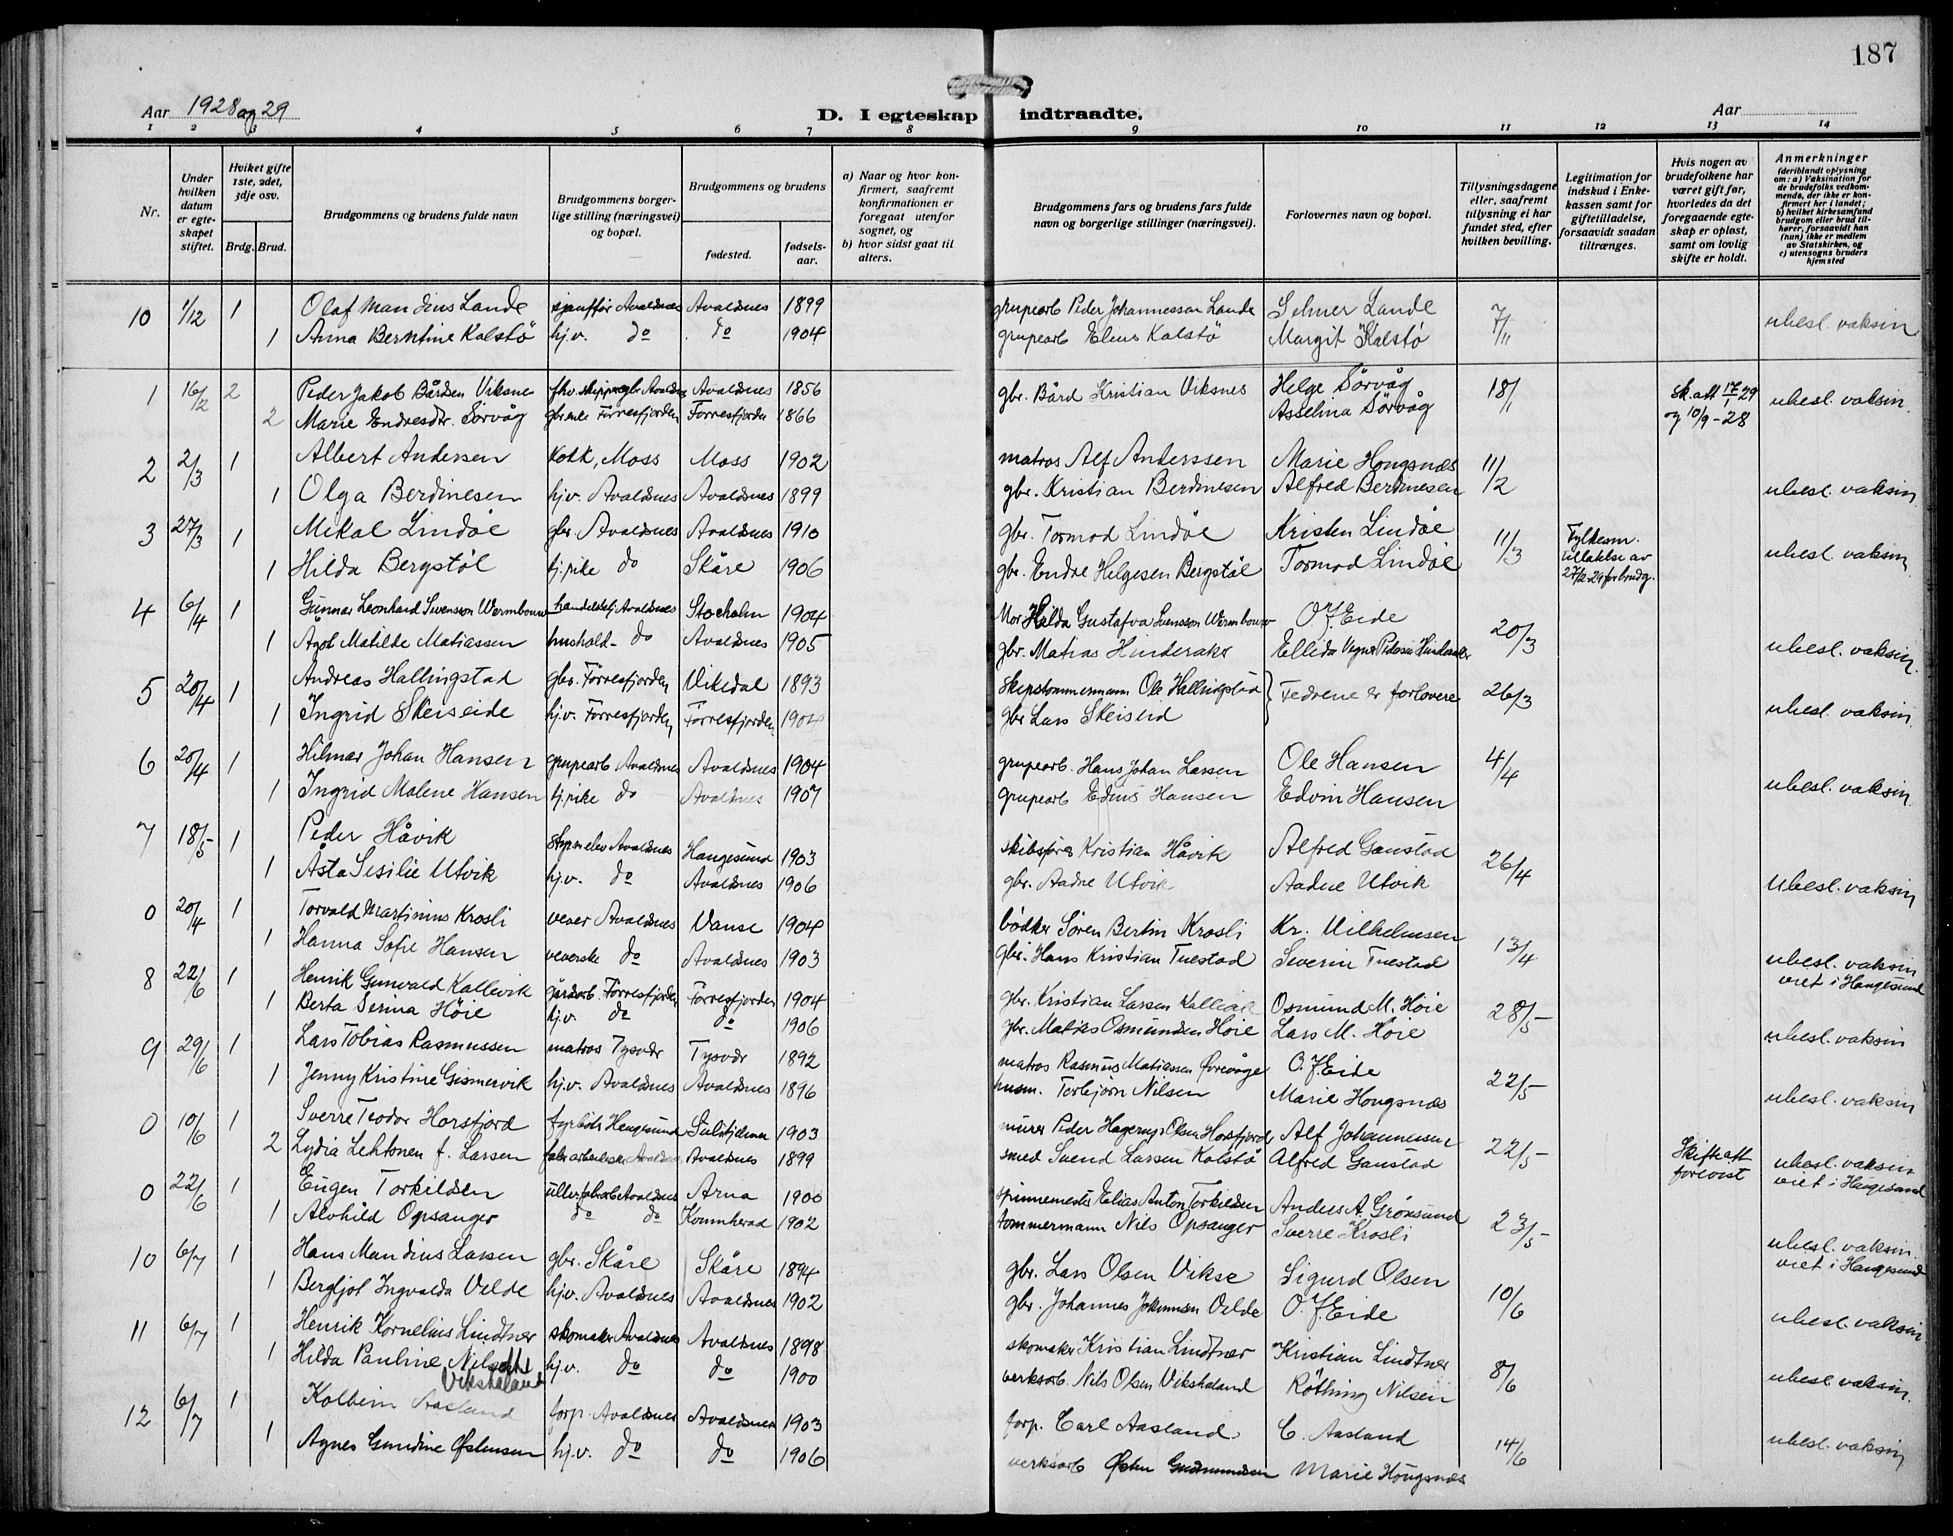 187
Aar 1928 og 29
D. I egteskap indtraadte.
Aar
1 2 3 4 5 6 7 8 9 10 11 12 13 14
Nr.
Under hvilken datum er egteskapet stiftet.
Hviket gifte 1ste, 2det, 3dje osv.
Brdg. Brud.
Brudgommens og brudens fulde navn
Brudgommens borgerlige stilling (næringsvei) og bopæl.
Brudgommens og brudens
fødested.
fødselsaar.
a) Naar og hvor konfirmert, saafremt konfirmationen er foregaat utenfor sognet, og
b) hvor sidst gaat til alters.
Brudgommens fars og brudens fars fulde navn og borgerlige stillinger (næringsvei).
Forlovernes navn og bopæl.
Tillysningsdagene eller, saafremt tillysning ei har fundet sted, efter hvilken bevilling.
Legitimation for indskud i Enkekassen samt for giftetilladelse, forsaavidt saadan tiltrænges.
Hvis nogen av brudefolkene har været gift før, hvorledes da det foregaaende egteskap er opløst, samt om lovlig skifte er holdt.
Anmerkninger (deriblandt oplysning om: a) Vaksination for de brudefolks vedkommende, der ikke er konfirmert her i landet; b) hvilket kirkesamfund brudgom eller brud tilhører, forsaavidt han (hun) ikke er medlem av Statskirken, og c) utensogns bruders hjemsted
10 1/12 1 Olaf Mandius Lande sjauffør Avaldsnes Avaldsnes 1899 grupearb Peder Johannessen Lande Selmer Lande 7/11 ubesl. vaksin
1 Anna Berntine Kalstø hj.v. do do 1904 grupearb Elius Kalstø Margit Kalstø
1 16/2 2 Peder Jakob Bårdsen Viksne fhv. skipper gbr. Avaldsnes Avaldsnes 1856 gbr. Bård Kristian Viksnes Helge Sørvåg 18/1 Sk. att 17/1 29 ubesl. vaksin.
2 Marie Endresdtr. Sørvåg gbr. enke Førresfjorden Førresfjorden 1866 Asselina Sørvåg og 10/9-28
2 2/3 1 Albert Andersen Kokk, Moss Moss 1902 matros Alf Anderssen Marie Hongsnæs 11/2
1 Olga Berdinesen hj.v. Avaldsnes Avaldsnes 1899 gbr. Kristian Berdinesen Alfred Berdinesen ubesl. vaksin
3 27/3 1 Mikal Lindøe gbr. Avaldsnes Avaldsnes 1910 gbr. Tormod Lindøe Kristen Lindøe 11/3 Fylkesm. tillatelse av 27/2-29 for brudg. ubesl. vaksin
1 Hilda Bergstøl tj.pike do Skåre 1906 gbr. Endre Helgesen Bergstøl Tormod Lindøe
4 6/4 1 Gunnar Leonhard Svensson Wermbouwer handelsbetj. Avaldsnes Stocholm 1904 Mor Hulda Gustafva Svensson Wermbouwer O. J. Eide 20/3
1 Agot Matilde Matiassen hushold- do Avaldsnes 1905 gbr. Matias Hinderaker Ellida Vigne Pedersen Hinderaker ubesl. vaksin.
5 20/4 1 Andreas Hallingstad gbr. Førresfjorden Vikedal 1893 skipstømmermann Ole Hallingstad } Fedrene er forlovere 26/3
1 Ingrid Skeiseide hj.v. Førresfjorden Førresfjorden 1904 gbr. Lars Skeiseid ubesl. vaksin.
6 20/4 1 Hilmar Johan Hansen grupearb. Avaldsnes Avaldsnes 1904 grupearb. Hans Johan Larsen Ole Hansen 4/4
1 Ingrid Malene Hansen tj.pike do Avaldsnes 1907 grupearb Edius Hansen Edvin Hansen ubesl. vaksin.
7 18/5 1 Peder Håvik styrm. elev Avaldsnes Haugesund 1903 skibsfører Kristian Håvik Alfred Gaustad 26/4
1 Åsta Sesilie Utvik hj.v. do Avaldsnes 1906 gbr. Aadne Utvik Aadne Utvik ubesl. vaksin
0 20/4 1 Torvald Martinius Krosli vever Avaldsnes Vanse 1904 bødker Søren Bertin Krosli Kr. Vilhelmsen 13/4
1 Hanna Sofie Hansen veverske do Avaldsnes 1903 gbr. Hans Kristian Tuestad Severin Tuestad ubesl. vaksin viet i Haugesund
8 22/6 1 Henrik Gunvald Kallevik gårdarb. Førresfjorden Førresfjorden 1904 gbr. Kristian Larsen Kallevik Osmund M. Høie 28/5
1 Berta Serina Høie hj.v. do do 1906 gbr. Matias Osmundsen Høie Lars M. Høie ubesl. vaksin
9 29/6 1 Lars Tobias Rasmussen matros Tysvær Tysvær 1892 matros Rasmus MatiassenØrevåge O. J. Eide 22/5
1 Jenny Kristine Gismervik hj.v. Avaldsnes Avaldsnes 1896 husm. Torbjørn Nilsen Marie Hongsnæs ubesl. vaksin
0 10/6 1 Sverre Teodor Horsfjord fyrbøter Haugesund Sulitjelma 1903 murer Peder Hagerup Olsen Horsfjord Alf Johannessen 22/5 Skifteatt forevist
2 Lydia Lehtonen f. Larsen fabr. arbeiderske Avaldsnes Avaldsnes 1899 smed Svend Larsen Kalstø Alfred Gaustad ubesl. vaksin viet i Haugesund
0 22/6 1 Eugen Torkildsen ullvarefabr. arb Avaldsnes Arna 1900 spinnemester Elias Anton Torkildsen Anders A. Grønsund 23/5
1 Alvhild Opsanger do do Kvinnherad 1902 tømmermann Nils Opsanger Sverre Krosli ubesl. vaksin. viet i Haugesund
10 6/7 1 Hans Mandius Larsen gbr. Skåre Skåre 1894 gbr. Lars Olsen Vikse Sigurd Olsen 10/6
1 Bergljot Ingvalda Velde hj.v. Avaldsnes Avaldsnes 1902 gbr. Johannes Johannesen Velde O. J. Eide ubesl. vaksin
11 6/7 1 Henrik Kornelius Lindtner skomaker Avaldsnes Avaldsnes 1898 skomaker Kristian Lindtner Kristian Lindtner 8/6
1 Hilda Pauline Nilsdtr Vikshaland hj.v. do do 1900 verksarb. Nils Olsen Vikshaland Røthing Nilsen ubesl. vaksin.
12 6/7 1 Kolbein Aasland forp. Avaldsnes Avaldsnes 1903 forp. Carl Aasland C. Aasland 14/6
1 Agnes Gundine Østensen hj.v. do do 1906 verksarb Østen Gudmundsen Marie Hongsnæs ubesl. vaksin